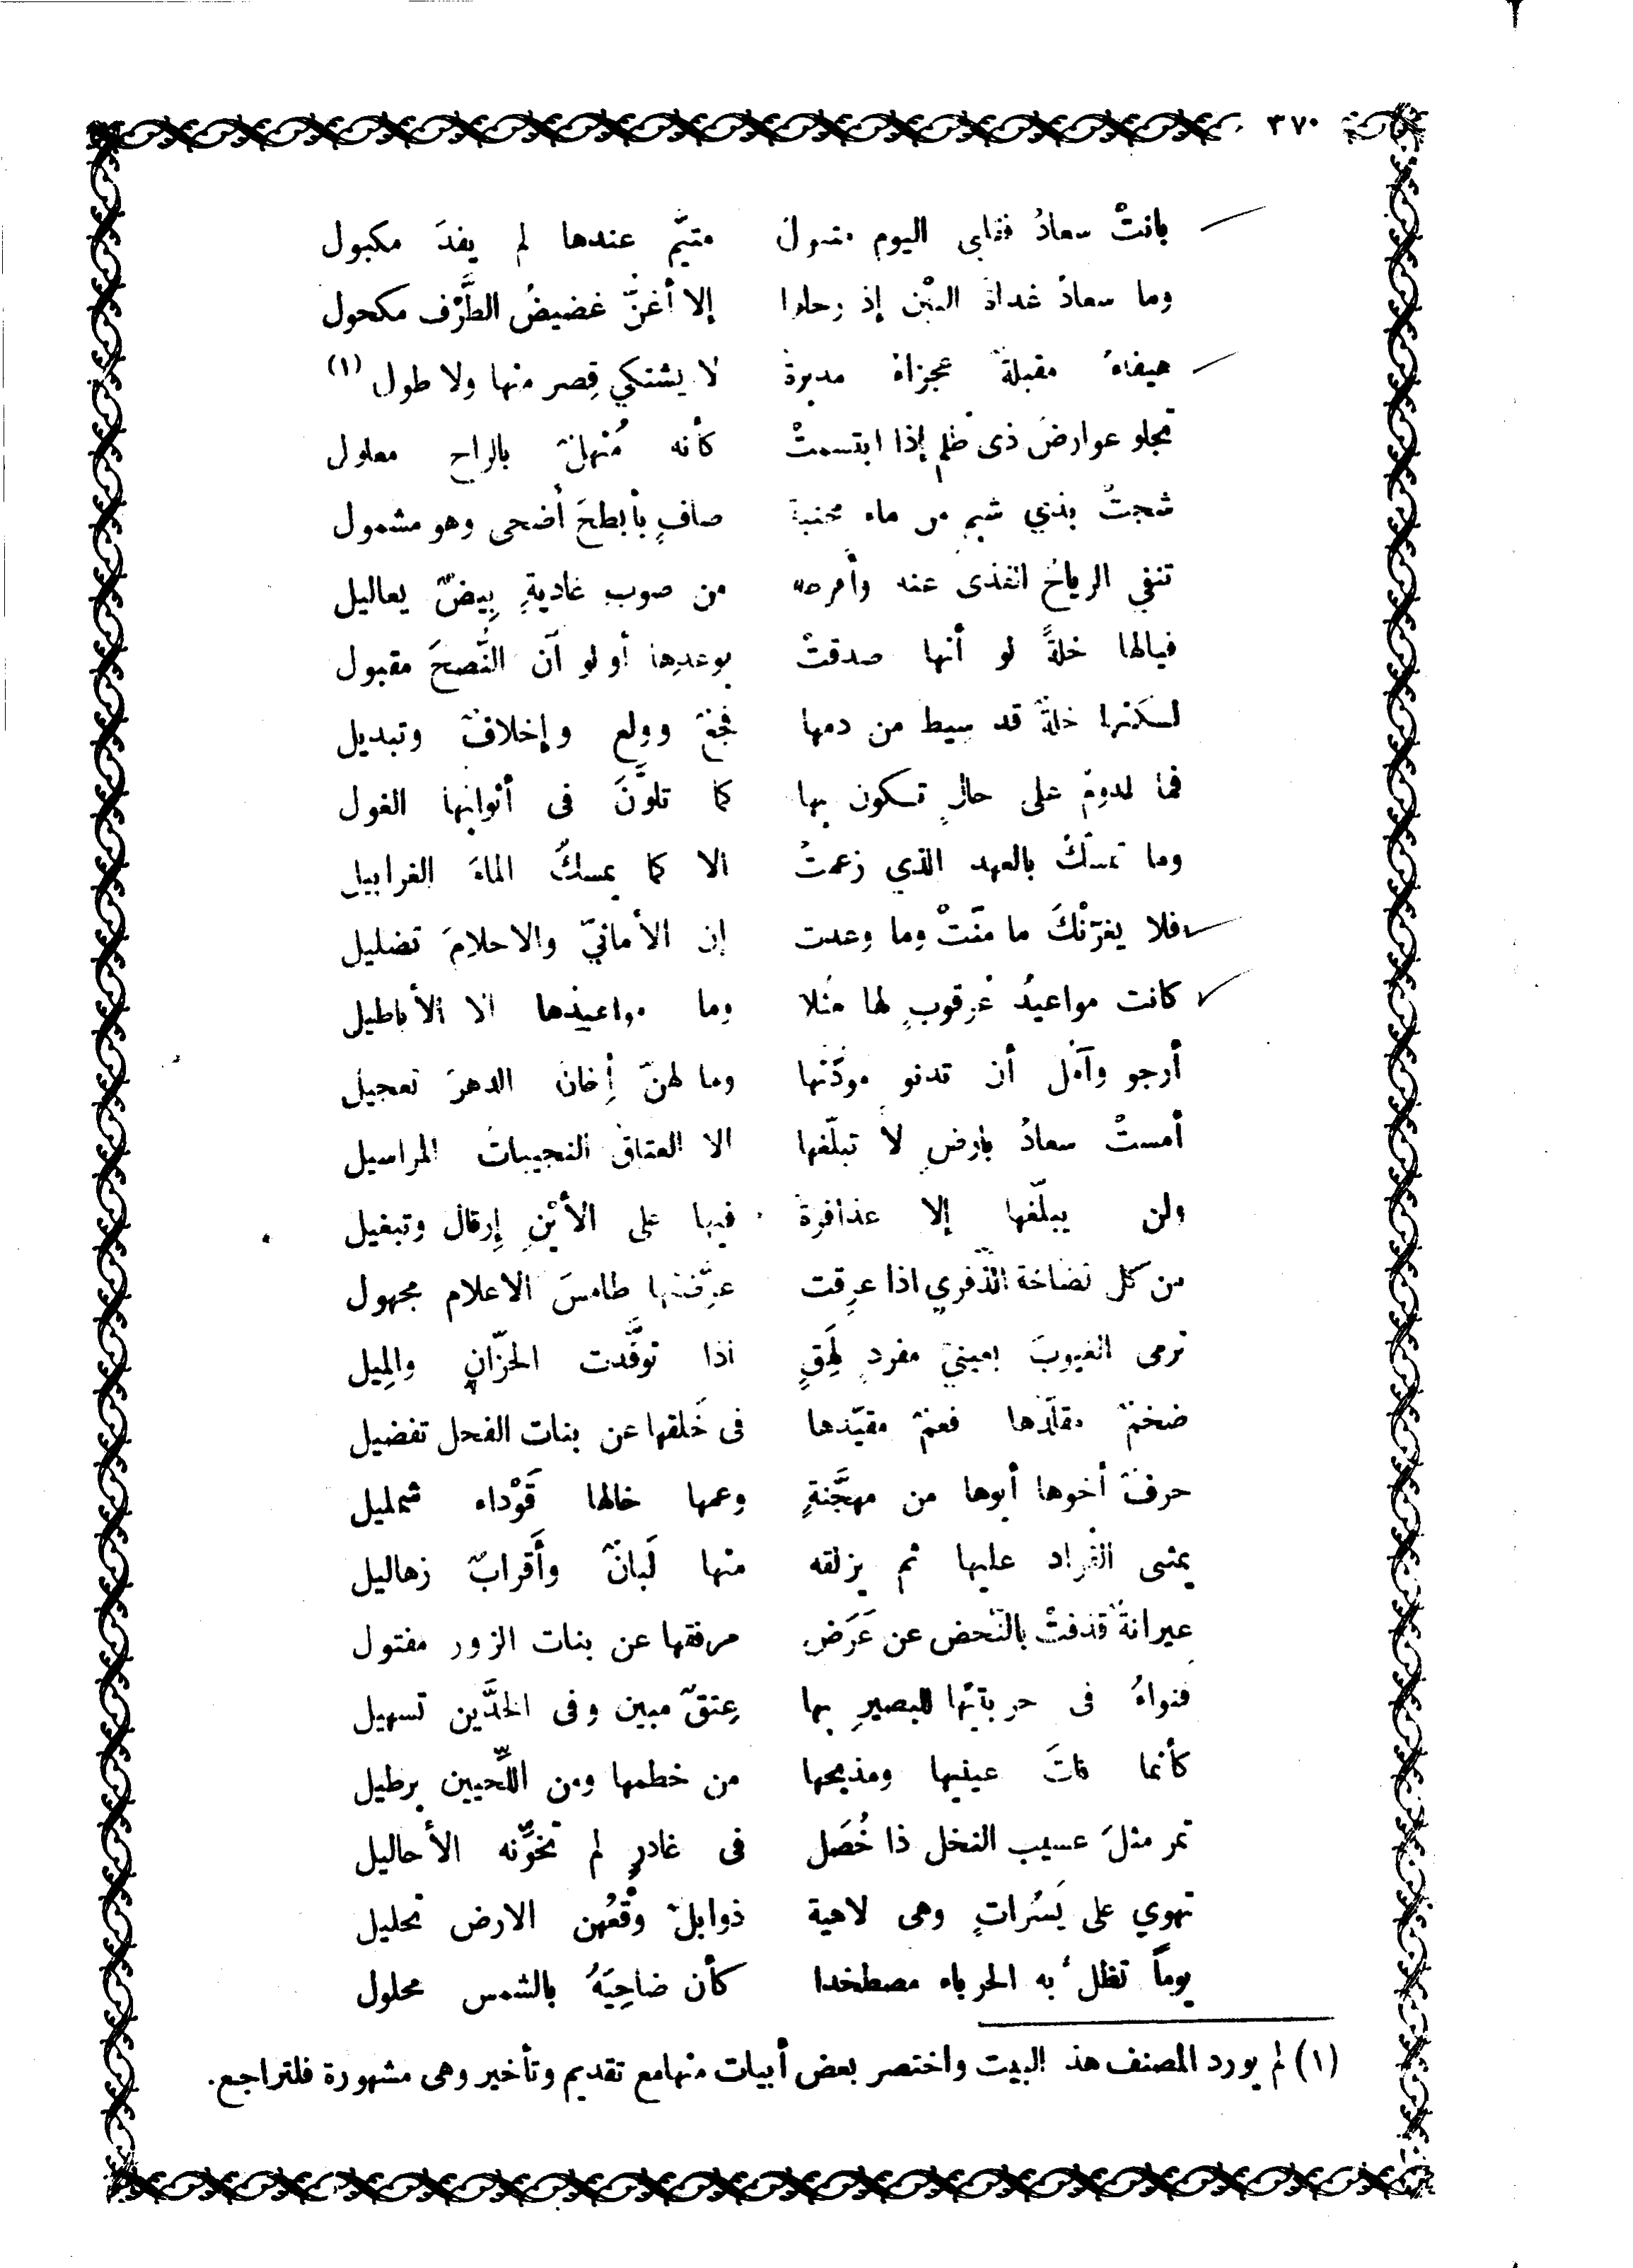 ٣٧٠
بانتْ سعادُ فقلبي اليوم متبولُ متيَّم عندها لم يفدَ مكبول
وما سعادُ غداةَ البيْن إذ رحلوا إلا أغنّ غضيضُ الطَّرْف مكحول
هيفاءُ مقبلةً عجزاءُ مدبرةً لا يشتكي قِصر منها ولا طول (١)
تجلو عوارضَ ذى ظَلم إذا ابتسمتْ كأنه مُنْهلٌ بالراح معلول
شجتْ بذي شبمٍ من ماء محنيةٍ صافٍ بأبطحَ أضحى وهو مشمول
تنفي الرياحُ القذى عنه وأفرطه من صوب غاديةٍ بِيضٌ يعاليل
فيالها خلةً لو أنها صدقتْ بوعدِها أو لو آن النُّصحَ مقبول
لكنها خلةٌ قد سيط من دمها فجعٌ وولع وإخلافٌ وتبديل
فما تدومُ على حالٍ تكون بها كما تلوَّنَ فى أثوابِها الغول
وما تمسّكُ بالعهد الذي زعمتْ الا كما يمسكُ الماءَ الغرابيل
فلا يغرّنْكَ ما منّتْ وما وعدت إن الأمانيّ والاحلامَ تضليل
كانت مواعيدُ عُرقوبٍ لها مثلا وما مواعيدُها الا الأباطيل
أرجو وآمُل أن تدنو مودّتُها وما لهنّ أِخالُ الدهرَ تعجيل
أمستْ سعادُ بأرضٍ لا تبلّغها الا العتاقُ النجيباتُ المراسيل
ولن يبلّغها إلا عذافرةٌ فيها على الأيْنِ إِرقال وتبغيل
من كل نضاخة الذّفري اذا عرِقت عرِّضتُها طامسَ الاعلام مجهول
ترمى الغيوبَ بعينيْ مفردٍ لَهِقٍ اذا توقَّدت الحزّانِ والمِيل
ضخمٌ مقلَّدها فعمٌ مقيّدها فى خَلقها عن بنات الفحل تفضيل
حرفٌ أخوها أبوها من مهجَّنةٍ وعمها خالها قَوْداء شمليل
يمشى القُراد عليها ثم يزلقه منها لَبانٌ وأَقرابٌ زهاليل
عيرانةٌ قذفتْ بالنّحض عن عَرَضٍ مرفقها عن بنات الزور مفتول
قنواءُ فى حربتيْها للبصيرِ بها عِتقٌ مبين وفى الخدَّين تسهيل
كأنما فاتَ عينيها ومذبحها من خطمها ومن اللَّحيين برطيل
تمر مثلَ عسيب النخل ذا خُصَل فى غادرٍ لم تخوَّنه الأحاليل
تهوي على يَسُراتٍ وهى لاهية ذوابلٌ وقْعُهن الارض تحليل
يوماً تظلُ به الحرباء مصطخدا كأن ضاحِيَهُ بالشمس محلول
(١) لم يورد المصنف هذ البيت واختصر بعض أبيات منهامع تقديم وتأخير وهى مشهورة فلتراجع.